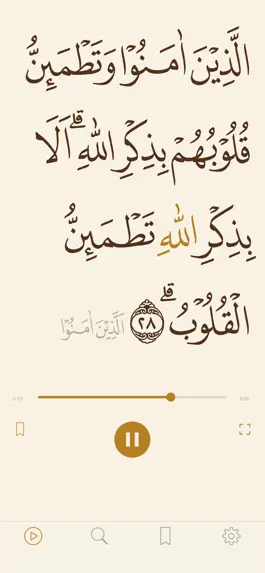 الَّذِيْنَ اٰمَنُوْا وَتَطْمَىِٕنُّ
قُلُوْبُهُمْ بِذِكْرِ اللّٰهِ ۗ اَلَا
بِذِكْرِ اللّٰهِ تَطْمَىِٕنُّ
الْقُلُوْبُ ۗ ٢٨ اَلَّذِيْنَ اٰمَنُوْا